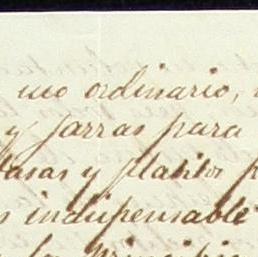 uso ordinario,
y jarras para
tasas y platitos
indispensable